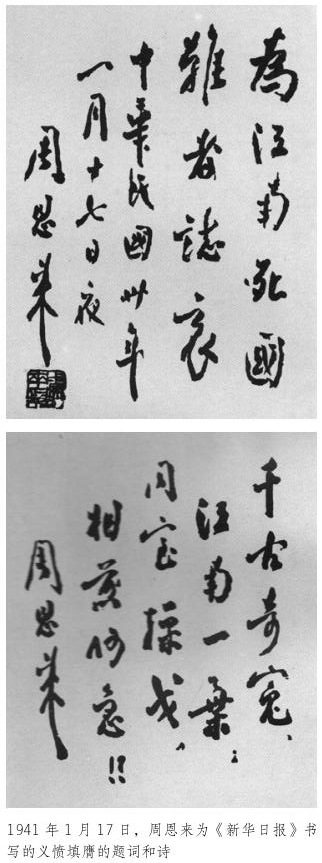 為江南死國
難者誌哀
中華民國卅年
一月十七日夜
周恩来
千古奇冤、
江南一葉；
同室操戈、
相煎何急!!
周恩来
1941 年 1 月 17 日，周恩来为《新华日报》书
写的义愤填膺的题词和诗